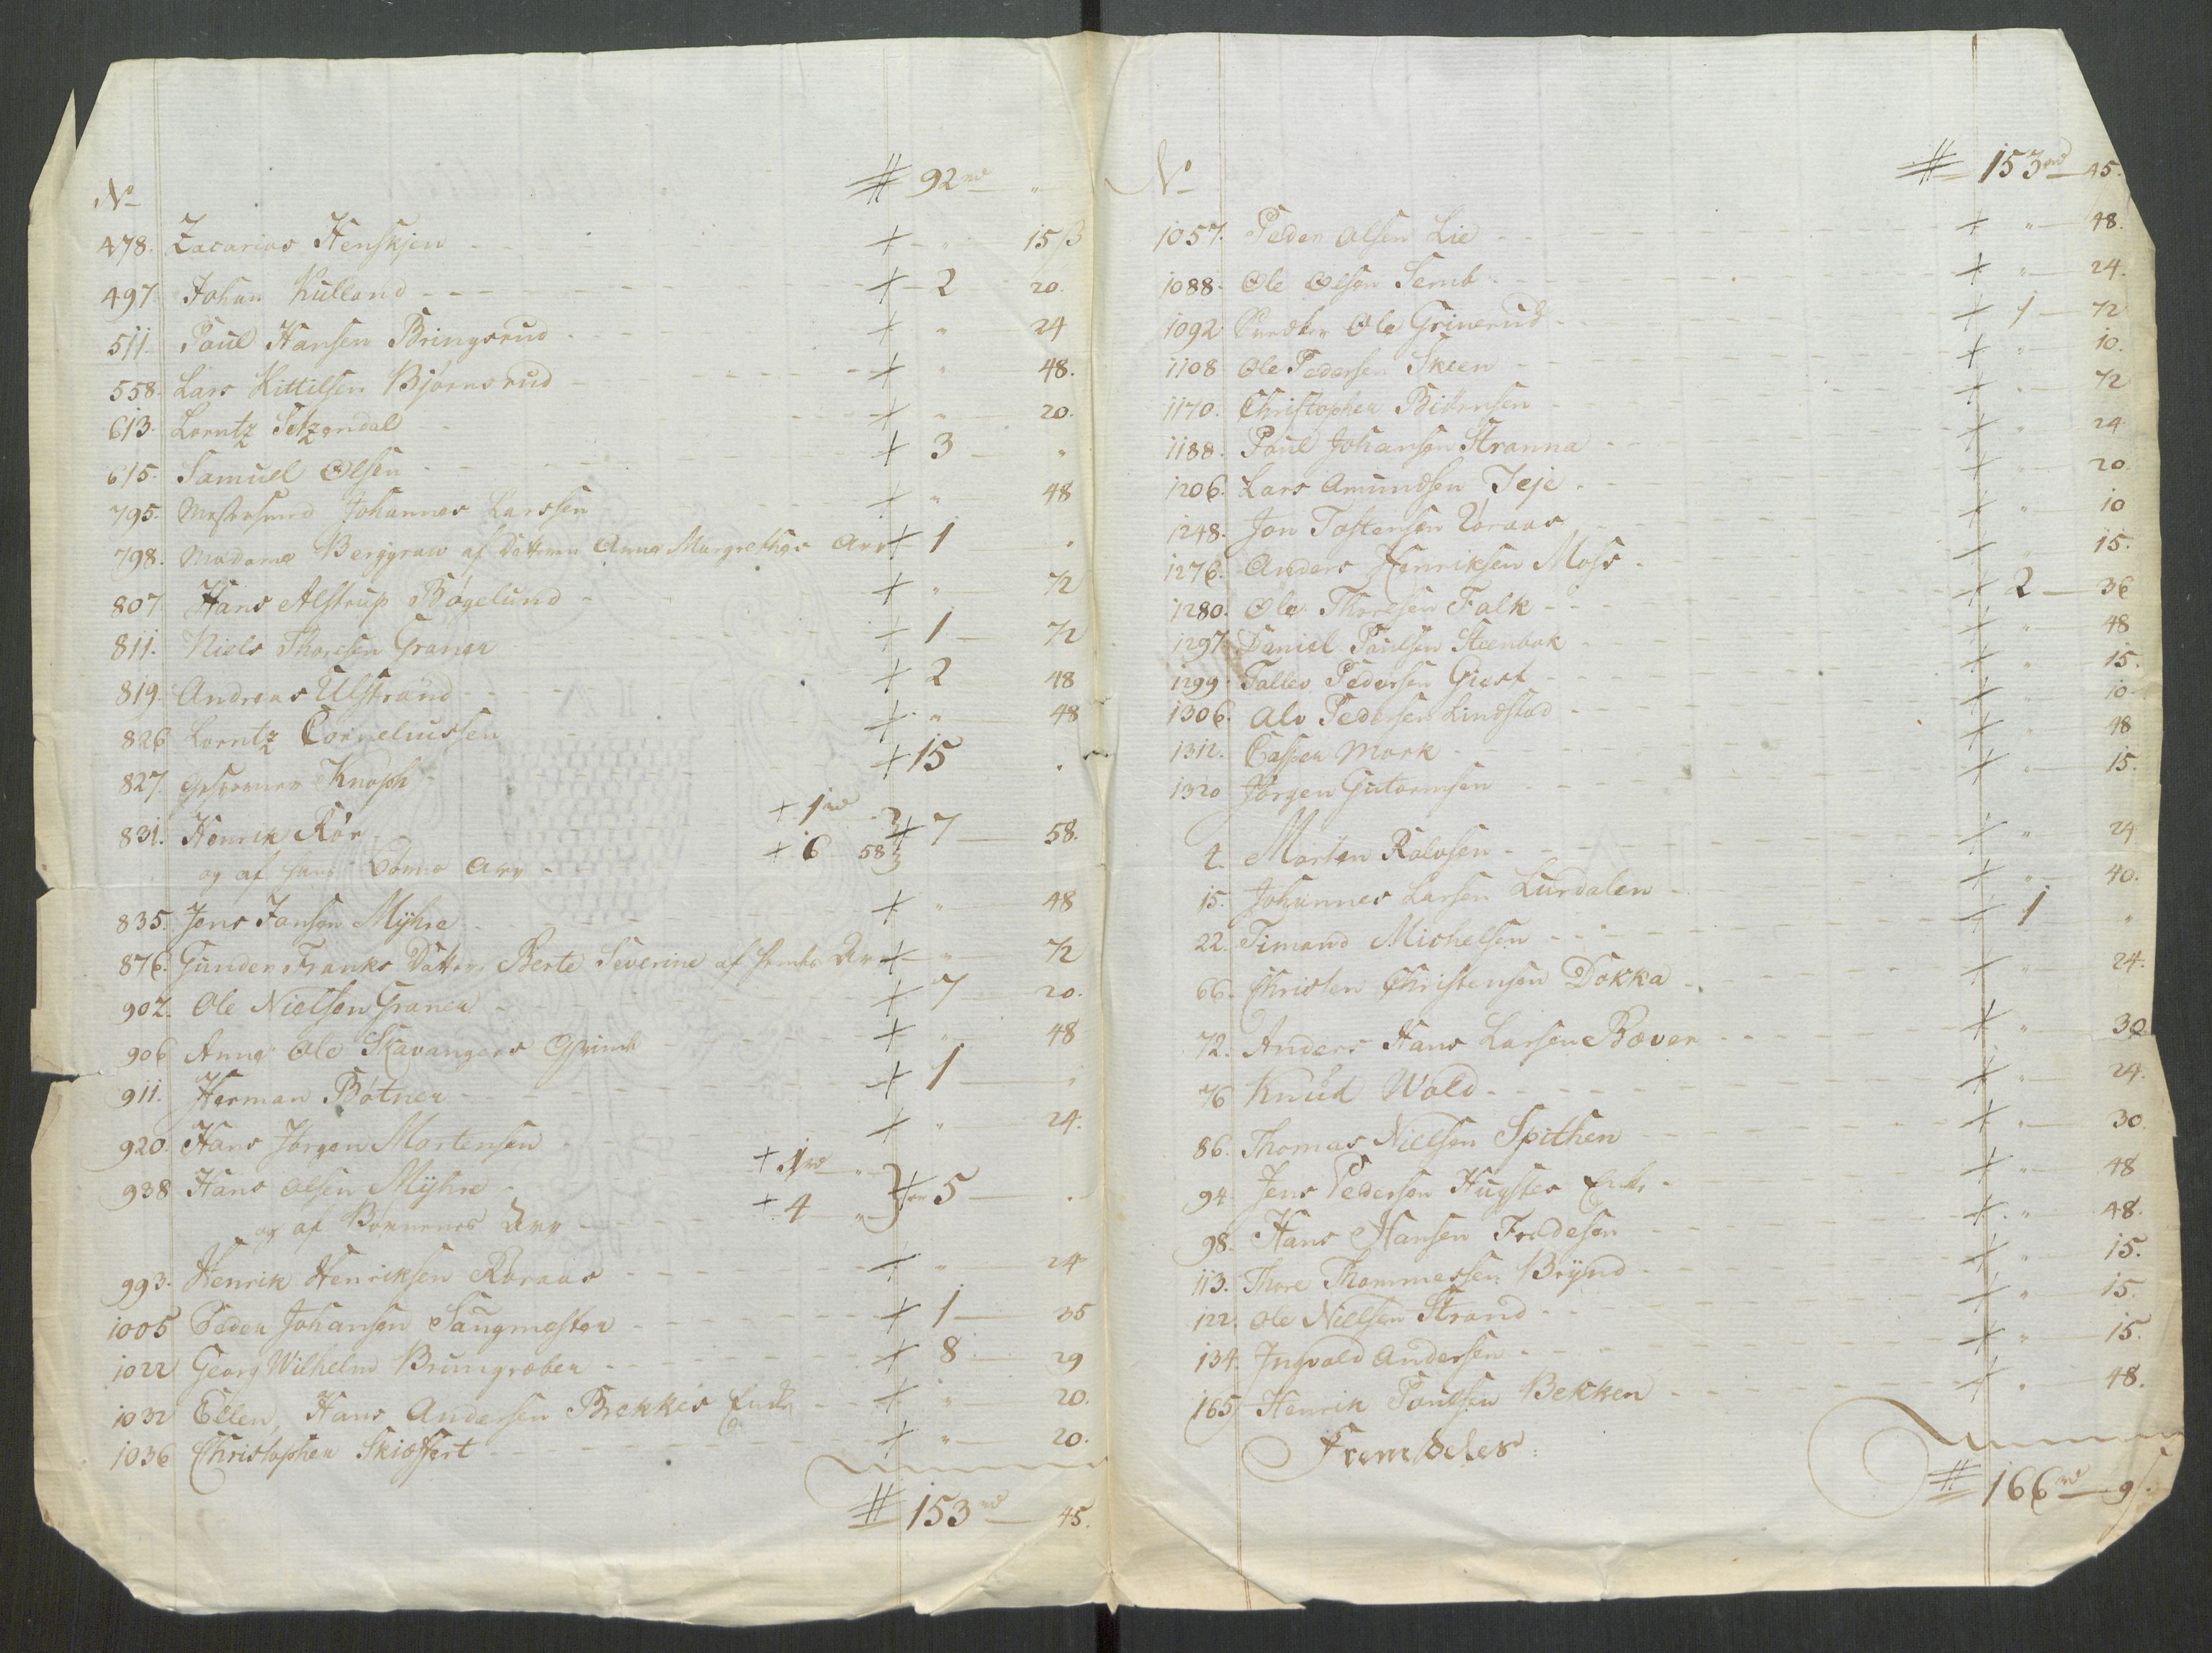 № # 92 rd "
478. Zacarias Henskjen + " 15 ß
497. Johan Kulland + 2 20.
511. Paul Hansen Bringsrud + " 24
558. Lars Kittilsen Bjørnsrud + " 48.
613. Lorntz Setzendal + " 20.
615. Samuel Olsen + 3 "
795. Mestersmed Johannes Larssen + " 48
798. Madame Berggraw af Datteren Anna Margrethes Arv + 1 "
807. Hans Alstrup Bøgelund + " 72
811. Niels Thoresen Graner + 1 72
819. Andreas Ulstrand + 2 48
826 Lorntz Corneliussen + " 48
827. Knoph + 15 "
831. Henrik Rør + 1 rd
og af hans Børns Arv + 6 58 + 7 58.
835. Jens Jansen Mÿhre + " 48
876. Gunder Franks Datter Berte Severine af hendes Arv + " 72
902. Ole Nielsen Graner + 7 20.
906 Anne Ole Skavangers + " 48
911. Herman Bøtner + 1 "
920. Hans Jørgen Mortensen + " 24.
938 Hans Olsen Mÿhre + 1 rd "
og af Børnenes Arv + 4 " + 5 "
993. Henrik Henriksen Røraas + " 24
1005 Peder Johansen Saugmester + 1 35
1022 Georg Wilhelm Brungræber + 8 29
1032 Ellen, Hans Andersen Brekkes Enke + " 20.
1036 Christopher Skiøffert + " 20.
# 153 rd 45.
№ # 153 rd 45.
1057. Peder Olsen Lie + " 48.
1088. Ole Olsen Semb + " 24.
1092 Ole Grinerud + 1 72
1108 Ole Pedersen Skeen + " 10.
1170. Christopher Biørnsen + " 72
1188. Paul Johansen Stranna + " 24
1206. Lars Amundsen Teje + " 20.
1248. Jon Tostensen Røraas + " 10
1276. Anders Henriksen Moss + " 15.
1280. Ole Thoresen Falk + 2 36
1297. Daniel Paulsen Steenbok + " 48
1299. Tallev Pedersen Giest + " 15.
1306. Alv Pedersen Lindstad + " 10
1312. Casper Mork + " 48
1320 Jørgen Gutormsen + " 15.
2. Morten Rolvsen + " 24
15. Johannes Larsen Lurdalen + " 40.
22. Timand Michelsen + 1 "
66. Christen Christensen Dokka + " 24.
72. Anders Hans Larsen Bæver + " 30
76 Knud Wold + " 24.
86. Thomas Nielsen Spithen + " 30
94. Jens Pedersen Hugstes Enke + " 48
98. Hans Hansen Fredesen + " 48.
113. Thore Thommessen Brÿnd + " 15.
122. Ole Nielsen Strand + " 15.
134. Ingvald Andersen + " 15.
165. Henrik Poulsen Bekken + " 48.
Fremdeles
# 166 rd 9 ß.